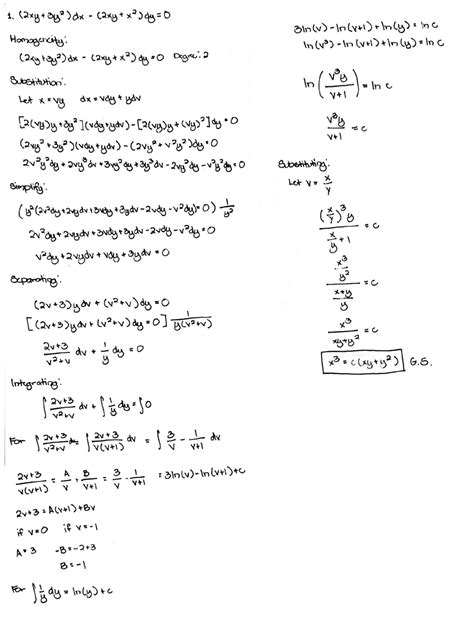 1. (2xy + 3y²) dx - (2xy + x²) dy = 0
Homogeneity:
(2xy + 3y²) dx - (2xy + x²) dy = 0 Degree: 2
Substitution:
Let x = vy dx = vdy + ydv
[2(vy)y + 3y²](vdy + ydv) - [2(vy)y + (vy)²] dy = 0
(2vy² + 3y²)(vdy + ydv) - (2vy² + v²y²) dy = 0
2v²y²dy + 2vy³dv + 3vy²dy + 3y³dv - 2vy²dy - v²y²dy = 0
Simplify:
(y²(2v²dy + 2vydv + 3vdy + 3ydv - 2vdy - v²dy) = 0) 1/y²
2v²dy + 2vydv + 3vdy + 3ydv - 2vdy - v²dy = 0
v²dy + 2vydv + vdy + 3ydv = 0
Separating:
(2v+3) ydv + (v²+v) dy = 0
[(2v+3) ydv + (v²+v) dy = 0] 1/y(v²+v)
2v+3/v²+v dv + 1/y dy = 0
Integrating:
∫ 2v+3/v²+v dv + ∫ 1/y dy = ∫0
For ∫ 2v+3/v²+v = ∫ 2v+3/v(v+1) dv = ∫ 3/v - 1/v+1 dv
2v+3/v(v+1) = A/v + B/v+1 = 3/v - 1/v+1 = 3ln(v) - ln(v+1) + c
2v+3 = A(v+1) + Bv
if v=0 if v=-1
A=3 -B=-2+3
B=-1
For ∫ 1/y dy = ln(y) + c
3ln(v) - ln(v+1) + ln(y) = lnc
ln(v³) - ln(v+1) + ln(y) = lnc
ln(v³y/v+1) = lnc
v³y/v+1 = c
Substituting:
Let v = x/y
(x/y)³y/x/y+1 = c
x³/y²/x+y/y = c
x³/xy+y² = c
x³ = c(xy+y²) G.S.